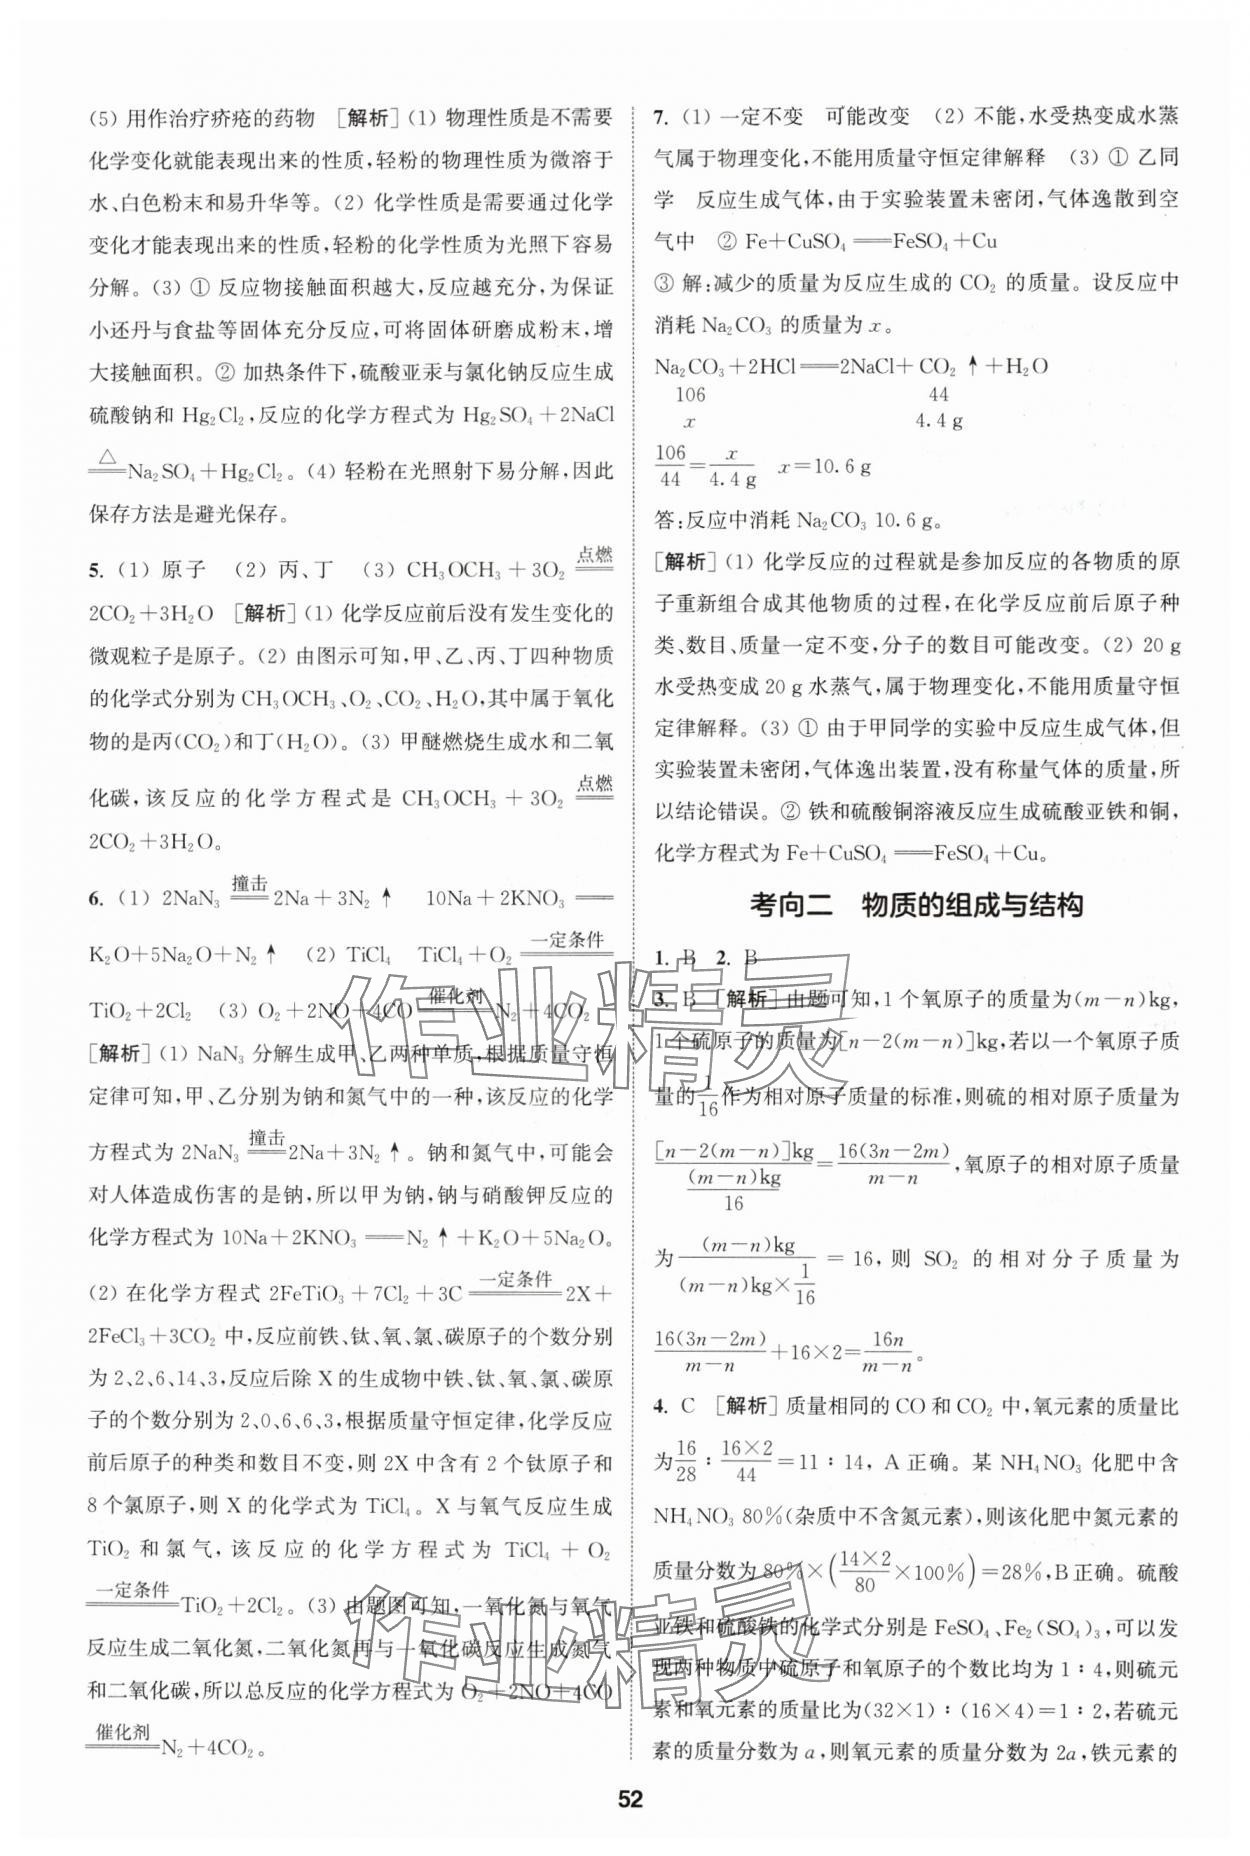 (5) 用作治疗疥疮的药物 [解析](1) 物理性质是不需要
化学变化就能表现出来的性质,轻粉的物理性质为微溶于
水、白色粉末和易升华等。(2) 化学性质是需要通过化学
变化才能表现出来的性质,轻粉的化学性质为光照下容易
分解。(3) ① 反应物接触面积越大,反应越充分,为保证
小还丹与食盐等固体充分反应,可将固体研磨成粉末,增
大接触面积。② 加热条件下,硫酸亚汞与氯化钠反应生成
硫酸钠和 Hg₂Cl₂,反应的化学方程式为 Hg₂SO₄+2NaCl
\xlongequal{△}Na₂SO₄+Hg₂Cl₂。(4) 轻粉在光照射下易分解,因此
保存方法是避光保存。
5. (1) 原子 (2) 丙、丁 (3) CH₃OCH₃+3O₂ \xlongequal{点燃}
2CO₂+3H₂O [解析](1) 化学反应前后没有发生变化的
微观粒子是原子。(2) 由图示可知,甲、乙、丙、丁四种物质
的化学式分别为 CH₃OCH₃、O₂、CO₂、H₂O,其中属于氧化
物的是丙(CO₂)和丁(H₂O)。(3) 甲醚燃烧生成水和二氧
化碳,该反应的化学方程式是 CH₃OCH₃+3O₂ \xlongequal{点燃}
2CO₂+3H₂O。
6. (1) 2NaN₃ \xlongequal{撞击} 2Na+3N₂↑ 10Na+2KNO₃ ══
K₂O+5Na₂O+N₂↑ (2) TiCl₄ TiCl₄+O₂ \xlongequal{一定条件}
TiO₂+2Cl₂ (3) O₂+2NO+4CO \xlongequal{催化剂} N₂+4CO₂
[解析](1) NaN₃ 分解生成甲、乙两种单质,根据质量守恒
定律可知,甲、乙分别为钠和氮气中的一种,该反应的化学
方程式为 2NaN₃ \xlongequal{撞击} 2Na+3N₂↑。钠和氮气中,可能会
对人体造成伤害的是钠,所以甲为钠,钠与硝酸钾反应的
化学方程式为 10Na+2KNO₃══N₂↑+K₂O+5Na₂O。
(2) 在化学方程式 2FeTiO₃+7Cl₂+3C \xlongequal{一定条件} 2X+
2FeCl₃+3CO₂ 中,反应前铁、钛、氧、氯、碳原子的个数分别
为 2、2、6、14、3,反应后除 X 的生成物中铁、钛、氧、氯、碳原
子的个数分别为 2、0、6、6、3,根据质量守恒定律,化学反应
前后原子的种类和数目不变,则 2X 中含有 2 个钛原子和
8 个氯原子,则 X 的化学式为 TiCl₄。X 与氧气反应生成
TiO₂ 和氯气,该反应的化学方程式为 TiCl₄+O₂
\xlongequal{一定条件} TiO₂+2Cl₂。(3) 由题图可知,一氧化氮与氧气
反应生成二氧化氮,二氧化氮再与一氧化碳反应生成氮气
和二氧化碳,所以总反应的化学方程式为 O₂+2NO+4CO
\xlongequal{催化剂} N₂+4CO₂。
7. (1) 一定不变 可能改变 (2) 不能,水受热变成水蒸
气属于物理变化,不能用质量守恒定律解释 (3) ① 乙同
学 反应生成气体,由于实验装置未密闭,气体逸散到空
气中 ② Fe+CuSO₄══FeSO₄+Cu
③ 解:减少的质量为反应生成的 CO₂ 的质量。设反应中
消耗 Na₂CO₃ 的质量为 x。
Na₂CO₃+2HCl══2NaCl+CO₂↑+H₂O
106 44
x 4.4 g
106/44=x/4.4 g x=10.6 g
答:反应中消耗 Na₂CO₃ 10.6 g。
[解析](1) 化学反应的过程就是参加反应的各物质的原
子重新组合成其他物质的过程,在化学反应前后原子种
类、数目、质量一定不变,分子的数目可能改变。(2) 20 g
水受热变成 20 g 水蒸气,属于物理变化,不能用质量守恒
定律解释。(3) ① 由于甲同学的实验中反应生成气体,但
实验装置未密闭,气体逸出装置,没有称量气体的质量,所
以结论错误。② 铁和硫酸铜溶液反应生成硫酸亚铁和铜,
化学方程式为 Fe+CuSO₄══FeSO₄+Cu。
考向二 物质的组成与结构
1. B 2. B
3. B [解析]由题可知,1 个氧原子的质量为(m-n)kg,
1 个硫原子的质量为[n-2(m-n)]kg,若以一个氧原子质
量的1/16作为相对原子质量的标准,则硫的相对原子质量为
\frac{[n-2(m-n)]kg}{\frac{(m-n)kg}{16}}=\frac{16(3n-2m)}{m-n},氧原子的相对原子质量
为\frac{(m-n)kg}{(m-n)kg×\frac{1}{16}}=16,则 SO₂ 的相对分子质量为
\frac{16(3n-2m)}{m-n}+16×2=\frac{16n}{m-n}。
4. C [解析]质量相同的 CO 和 CO₂ 中,氧元素的质量比
为\frac{16}{28}:\frac{16×2}{44}=11:14,A 正确。某 NH₄NO₃ 化肥中含
NH₄NO₃ 80%(杂质中不含氮元素),则该化肥中氮元素的
质量分数为 80%×(\frac{14×2}{80}×100%)=28%,B 正确。硫酸
亚铁和硫酸铁的化学式分别是 FeSO₄、Fe₂(SO₄)₃,可以发
现两种物质中硫原子和氧原子的个数比均为 1:4,则硫元
素和氧元素的质量比为(32×1):(16×4)=1:2,若硫元
素的质量分数为 a,则氧元素的质量分数为 2a,铁元素的
52
作业精灵
作业精灵